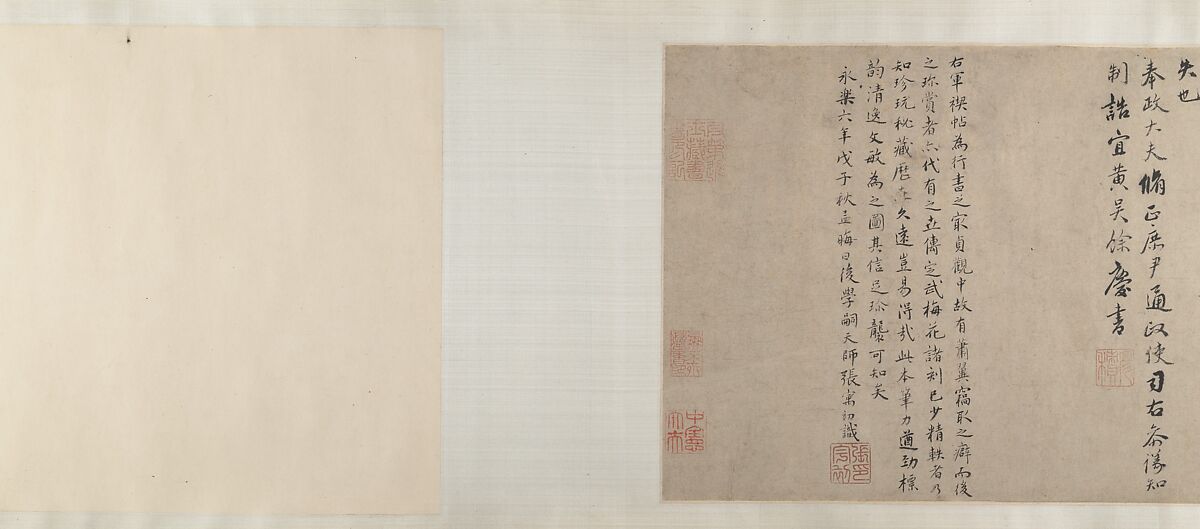 失也
奉政大夫脩正庶尹通政使司右參議知
制誥宜黃吳餘慶書
右軍禊帖為行書之冣貞觀中故有蕭翼竊取之癖而後
之珎賞者亦代有之世傳定武梅花諸刻已少精軼者乃
知珎玩秘藏歷久遠豈易得哉此本筆力遒勁標
韵清逸文敏為之圖其信足珎襲可知矣
永樂六年戊子秋孟晦日後學嗣天師張宇初識
張氏宇初
中憲